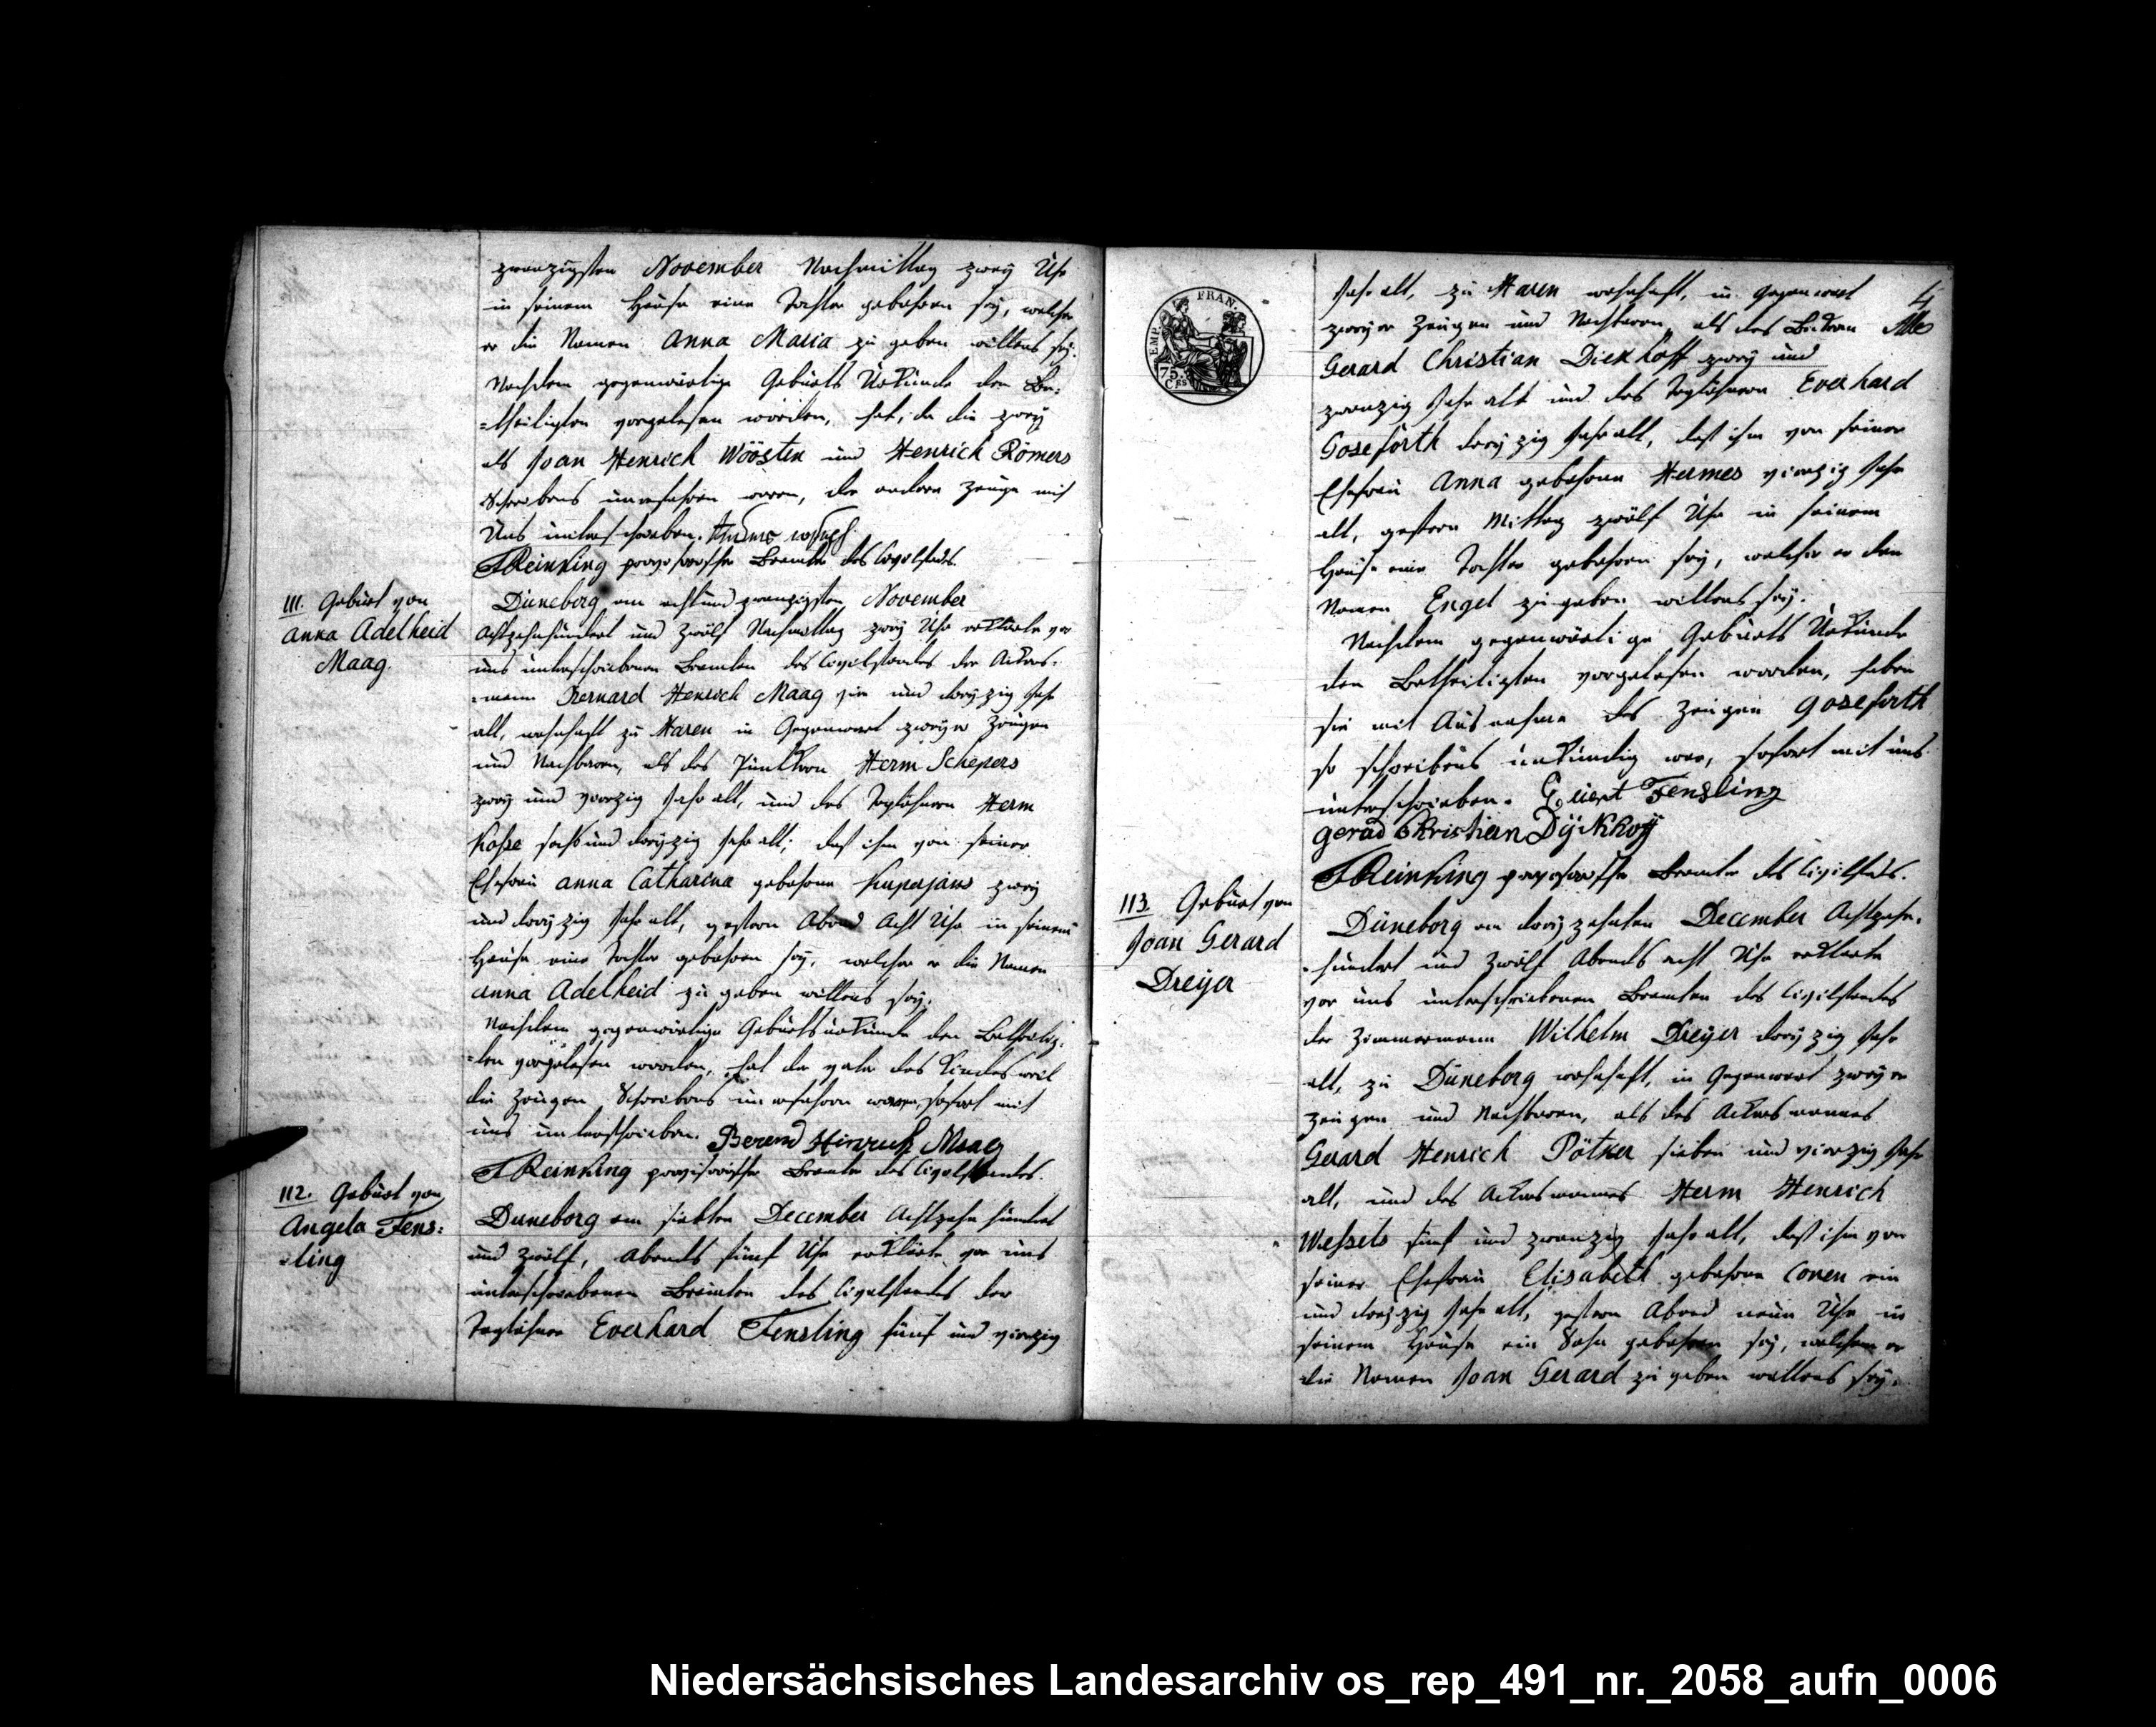 zwanzigsten November Nachmittag zwey Uhr
in seinem Hause eine Tochter gebohren sey, welcher
er die Namen Anna Maria zu geben willens sey.
Nachdem gegenwärtige Geburts Urkunde den Be-
=theiligten vorgelesen worden, hat, da die zwey
als Joan Henrich Wöösten und Henrich Römers
Schreibens unerfahren waren, der andere Zeuge mit
Uns unterschrieben.
Reinking provisorischer Beamter des Civilstands.
111. Geburt von
Anna Adelheid
Maag.
Düneborg am acht und zwanzigsten November
Achtzehnhundert und Zwölf Nachmittag zwey Uhr erklärte vor
uns unterschriebenen Beamten des Civilstandes der Ackers-
=mann Bernard Henrich Maag vier und dreyzig Jahr
alt, wohnhaft zu Haren in Gegenwart zweyer Zeugen
und Nachbaren, als des Herm Schepers
zwey und vierzig Jahr alt, und des Taglöhners Herm
Kosse sechs und dreyzig Jahr alt; daß ihm von seiner
Ehefrau Anna Catharina gebohrne Kuperjans zwey
und dreyzig Jahr alt, gestern Abend Acht Uhr in seinem
Hause eine Tochter gebohren sey, welcher er die Namen
Anna Adelheid zu geben willens sey.
Nachdem gegenwärtige Geburtsurkunde den Betheilig-
=ten vorgelesen worden, hat der Vater des Kindes weil
die Zeugen Schreibens unerfahren waren, sofort mit
uns unterschrieben. Berend Hinrich Maag
Reinking provisorischer Beamter des Civilstandes.
112. Geburt von
Angela Fens=
=ling
Duneborg am siebten December Achtzehn hundert
und zwölf, Abends fünf Uhr erklärte vor uns
unterschriebenen Beamten des Civilstandes der
Taglöhner Everhard Fensling fünf und vierzig
EMP. FRAN.
75.
CES
4
Jahr alt, zu Haren wohnhaft, in Gegenwart
zweyer Zeugen und Nachbaren, als des
Gerard Christian Diekhoff zwey und
zwanzig Jahr alt und des Taglöhners Everhard
Goseforth dreyzig Jahr alt, daß ihm von seiner
Ehefrau Anna gebohrne Hermes vierzig Jahr
alt, gestern Mittag zwölf Uhr in seinem
Hause eine Tochter gebohren sey, welcher er den
Namen Engel zu geben willens sey.
Nachdem gegenwärtige Geburts Urkunde
den Betheiligten vorgelesen worden, haben
sie mit Ausnahme des Zeugen Goseforth
so schreibens unkundig war, sofort mit uns
unterschrieben. Evert Fensling
gerad Christian Dyckhoff
Reinking provisorischer Beamter des Civilstds.
113. Geburt von
Joan Gerard
Dreyer
Düneborg am dreyzehnten December Achtzehn-
=hundert und Zwölf Abends acht Uhr erklärte
vor uns unterschriebenen Beamten des Civilstandes
der Zimmermann Wilhelm Dreyer dreyzig Jahr
alt, zu Düneborg wohnhaft, in Gegenwart zweyer
Zeugen und Nachbaren, als des Ackersmannes
Gerard Henrich Pötker sieben und vierzig Jahr
alt, und des Ackersmannes Herm Henrich
Wessels fünf und zwanzig Jahr alt, daß ihm von
seiner Ehefrau Elisabeth gebohrne Conen ein
und dreyzig Jahr alt, gestern Abend neun Uhr in
seinem Hause ein Sohn gebohren sey, welchem er
die Namen Joan Gerard zu geben willens sey.
Niedersächsisches Landesarchiv os_rep_491_nr._2058_aufn_0006